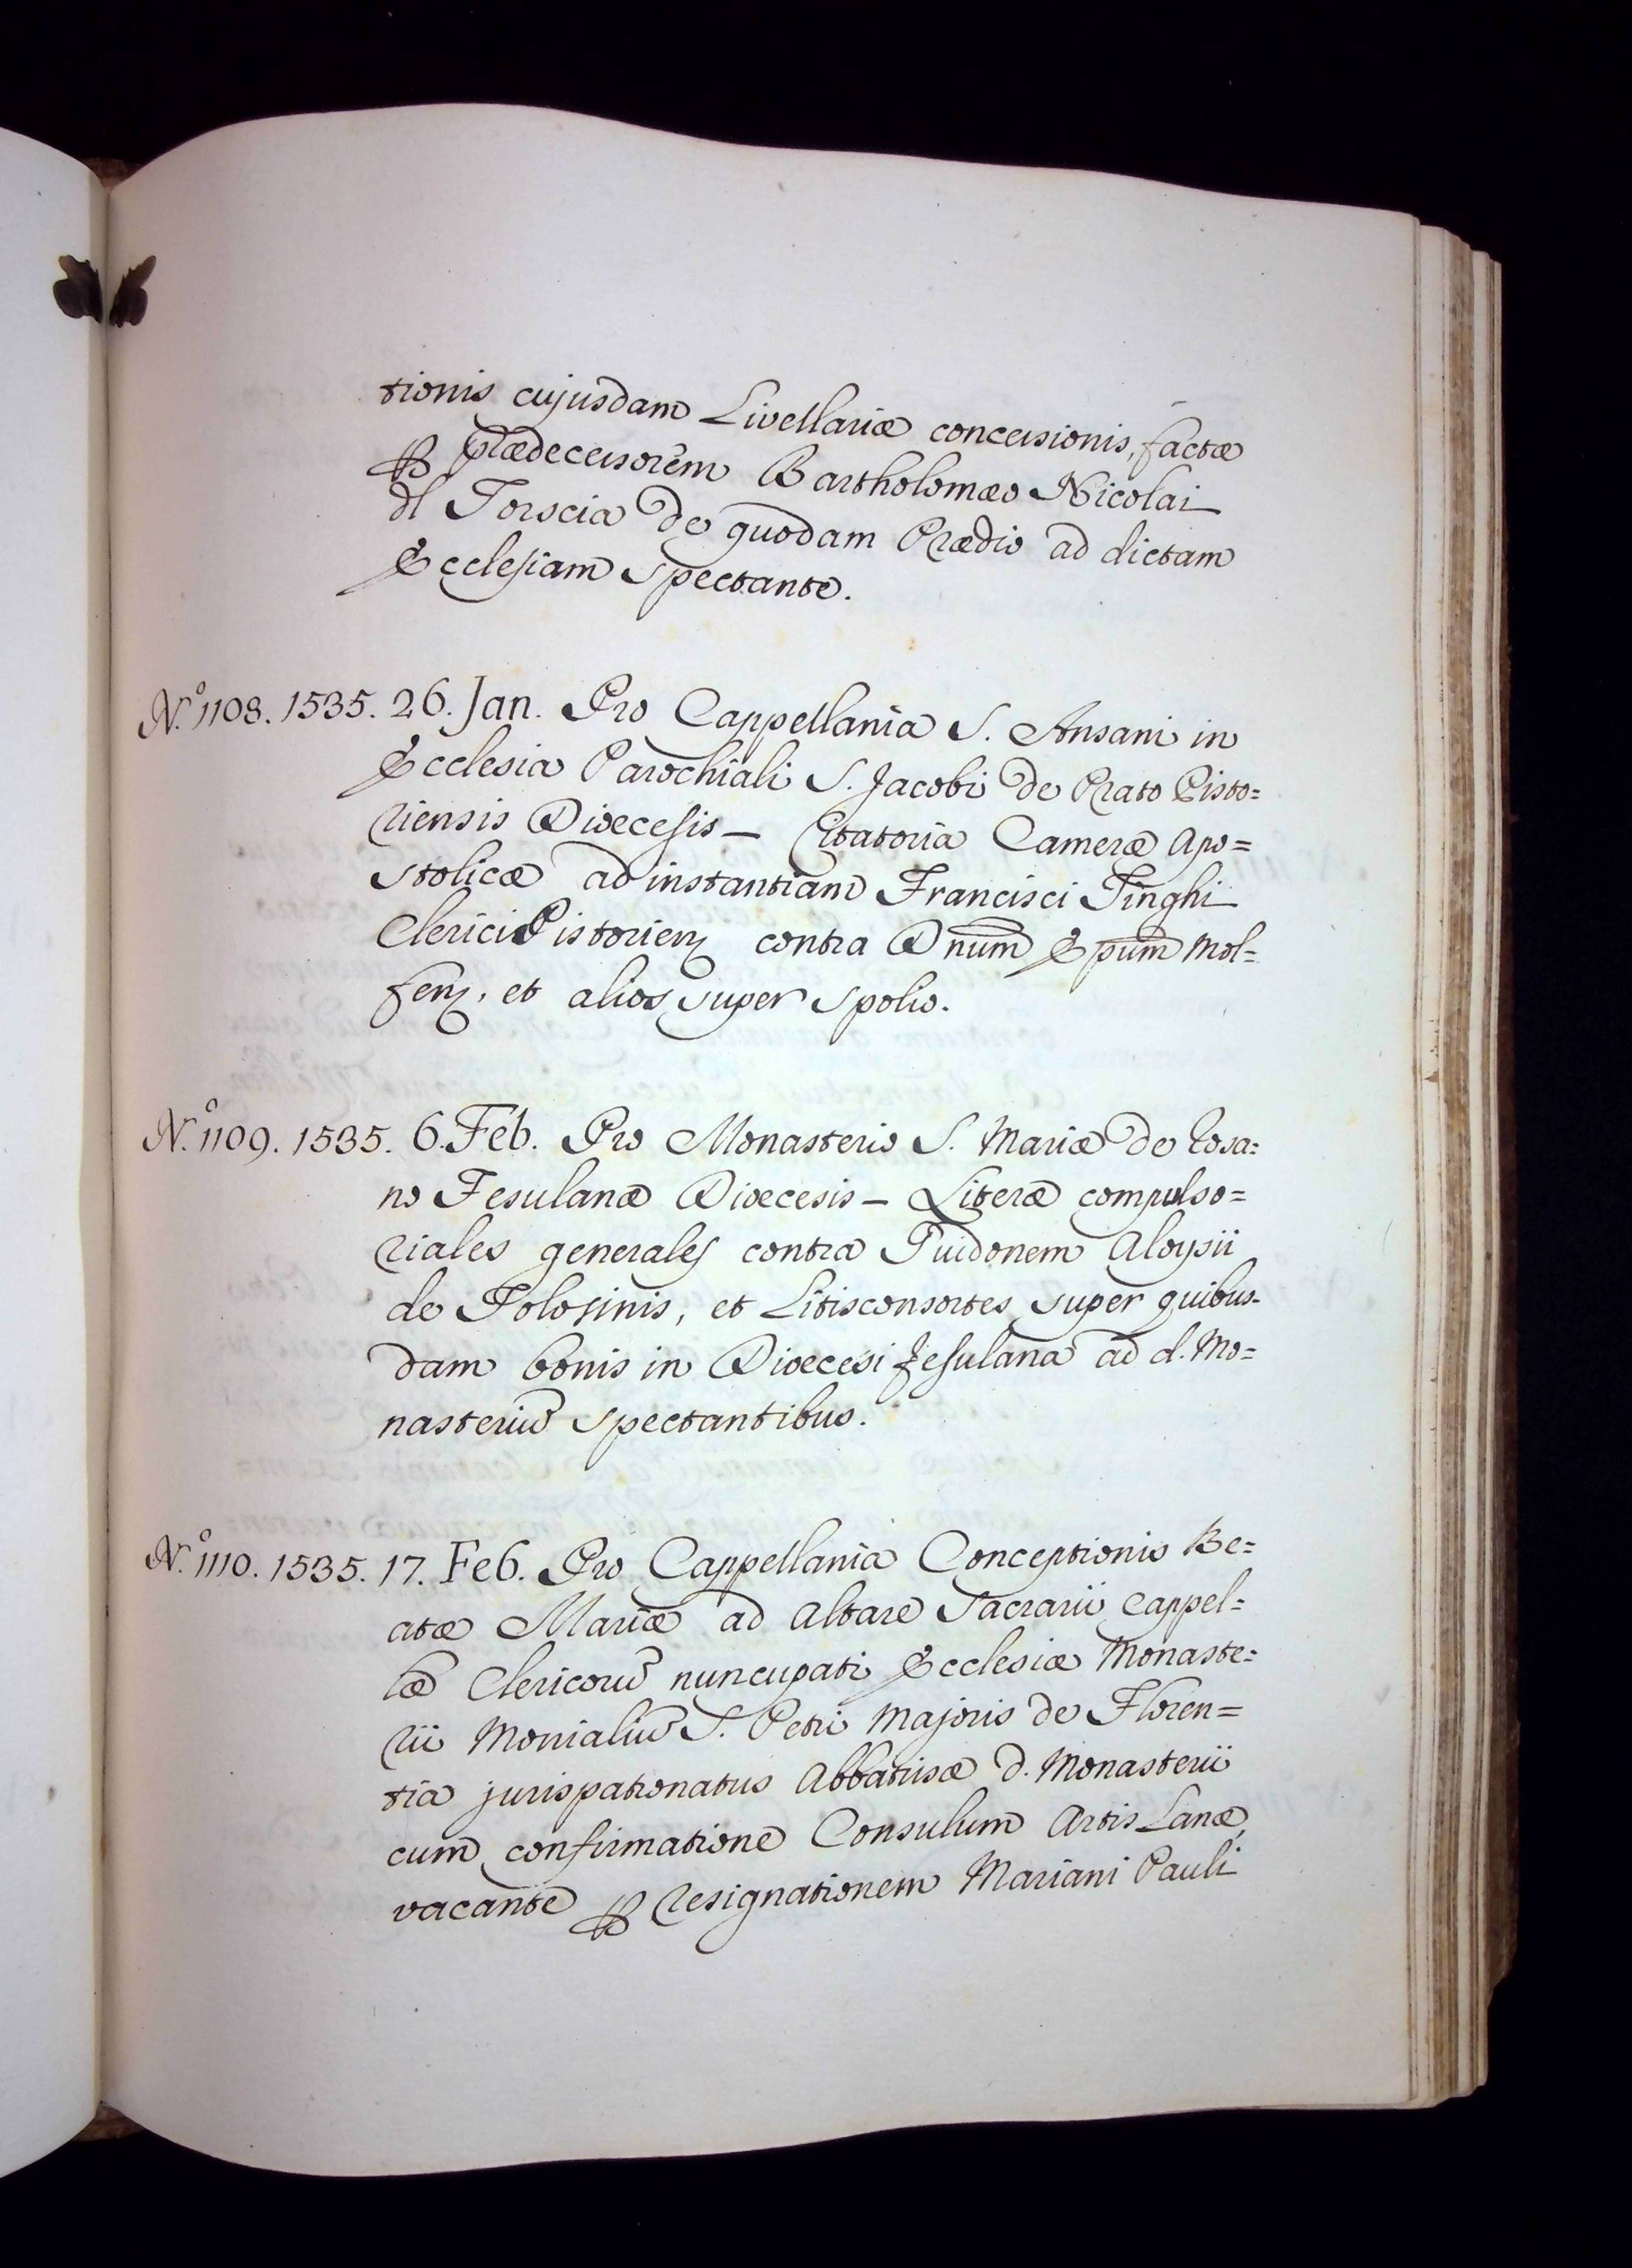 tionis cujusdam Livellariæ concessionis, factæ
ꝑ prædecessorem Bartholomæo Nicolai
dl Torscia de quodam Prædio ad dictam
Ecclesiam spectante.
N.º 1108. 1535. 26. Jan. Pro Cappellania S. Ansani in
Ecclesia Parochiali S. Jacobi de Prato Pisto=
riensis Diœcesis — Citatoria Cameræ Apo=
stolicæ ad instantiam Francisci Tinghi
Clerici Pistorieñ contra Dnum Epum Mol=
feñ, et alios super spolio.
N.º 1109. 1535. 6. Feb. Pro Monasterio S. Mariæ de Rosa=
no Fesulanæ Diœcesis — Literæ compulso=
riales generales contra Guidonem Aloysii
de Tolosinis, et Litisconsortes super quibus=
dam bonis in Diœcesi Fesulana ad d. Mo=
nasteriū spectantibus.
N.º 1110. 1535. 17. Feb. Pro Cappellania Conceptionis Be=
atæ Mariæ ad Altare Sacrarii Cappel=
læ Clericorū nuncupati Ecclesiæ Monaste=
rii Monialiū S. Petri Majoris de Floren=
tia jurispatronatus Abbatissæ d. Monasterii
cum confirmatione Consulum Artis Lanæ,
vacante ꝑ resignationem Mariani Pauli